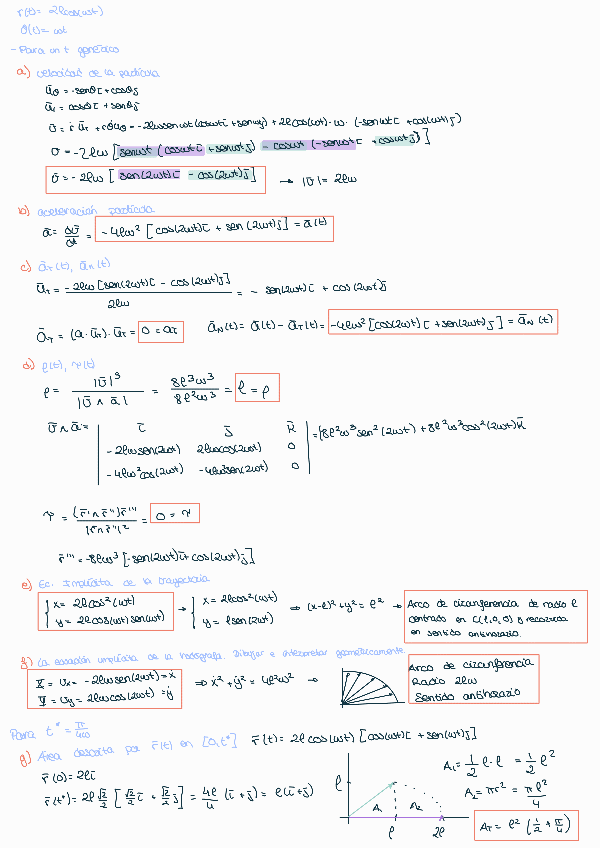 r(t) = 2ℓcos(ωt)
θ(t) = ωt
- Para un t genérico
a) velocidad de la partícula
ūθ = -senθ ī + cosθ j̄
ūr = cosθ ī + senθ j̄
v̄ = ṙ ūr + rθ̇ ūθ = -2ℓωsenωt (cosωt ī + senωt j̄) + 2ℓcos(ωt)·ω·(-senωt ī + cos(ωt) j̄)
v̄ = -2ℓω [senωt (cosωt ī + senωt j̄) - cosωt (-senωt ī + cosωt j̄)]
v̄ = -2ℓω [sen(2ωt) ī - cos(2ωt) j̄] → |v̄| = 2ℓω
b) aceleración partícula
ā = dv̄/dt = -4ℓω² [cos(2ωt) ī + sen(2ωt) j̄] = ā(t)
c) āT(t), āN(t)
ūT = -2ℓω [sen(2ωt) ī - cos(2ωt) j̄] / 2ℓω = - sen(2ωt) ī + cos(2ωt) j̄
āT = (ā·ūT)·ūT = 0 = aT āN(t) = ā(t) - āT(t) = -4ℓω² [cos(2ωt) ī + sen(2ωt) j̄] = āN(t)
d) ρ(t), τ(t)
ρ = |v̄|³ / |v̄ ∧ ā| = 8ℓ³ω³ / 8ℓ²ω³ = ℓ = ρ
v̄ ∧ ā = | ī j̄ k̄ | = (8ℓ²ω³sen²(2ωt) + 8ℓ²ω³cos²(2ωt)) k̄
-2ℓωsen(2ωt) 2ℓωcos(2ωt) 0
-4ℓω²cos(2ωt) -4ℓω²sen(2ωt) 0
τ = (r̄' ∧ r̄'') r̄''' / |r̄' ∧ r̄''|² = 0 = τ
r̄''' = -8ℓω³ [-sen(2ωt) ī + cos(2ωt) j̄]
e) Ec. Implícita de la trayectoria
{ x = 2ℓcos²(ωt) → { x = 2ℓcos²(ωt) ⇒ (x-ℓ)² + y² = ℓ² → Arco de circunferencia de radio ℓ
y = 2ℓcos(ωt)sen(ωt) y = ℓsen(2ωt) centrado en C(ℓ,0,0) y recorrida
en sentido antihorario.
f) La ecuación implícita de la hodógrafa. Dibujar e interpretar geométricamente.
X = vx = -2ℓωsen(2ωt) = ẋ ⇒ ẋ² + ẏ² = 4ℓ²ω² → Arco de circunferencia
Y = vy = 2ℓωcos(2ωt) = ẏ Radio 2ℓω
Sentido antihorario
Para t* = π/4ω
g) Área descrita por r̄(t) en [0,t*] r̄(t) = 2ℓcos(ωt) [cos(ωt) ī + sen(ωt) j̄]
r̄(0) = 2ℓ ī
r̄(t*) = 2ℓ √2/2 [√2/2 ī + √2/2 j̄] = 4ℓ/4 (ī + j̄) = ℓ(ī + j̄)
ℓ
A₁ A₂
ℓ 2ℓ
A₁ = 1/2 ℓ·ℓ = 1/2 ℓ²
A₂ = πr² = πℓ²/4
AT = ℓ² (1/2 + π/4)